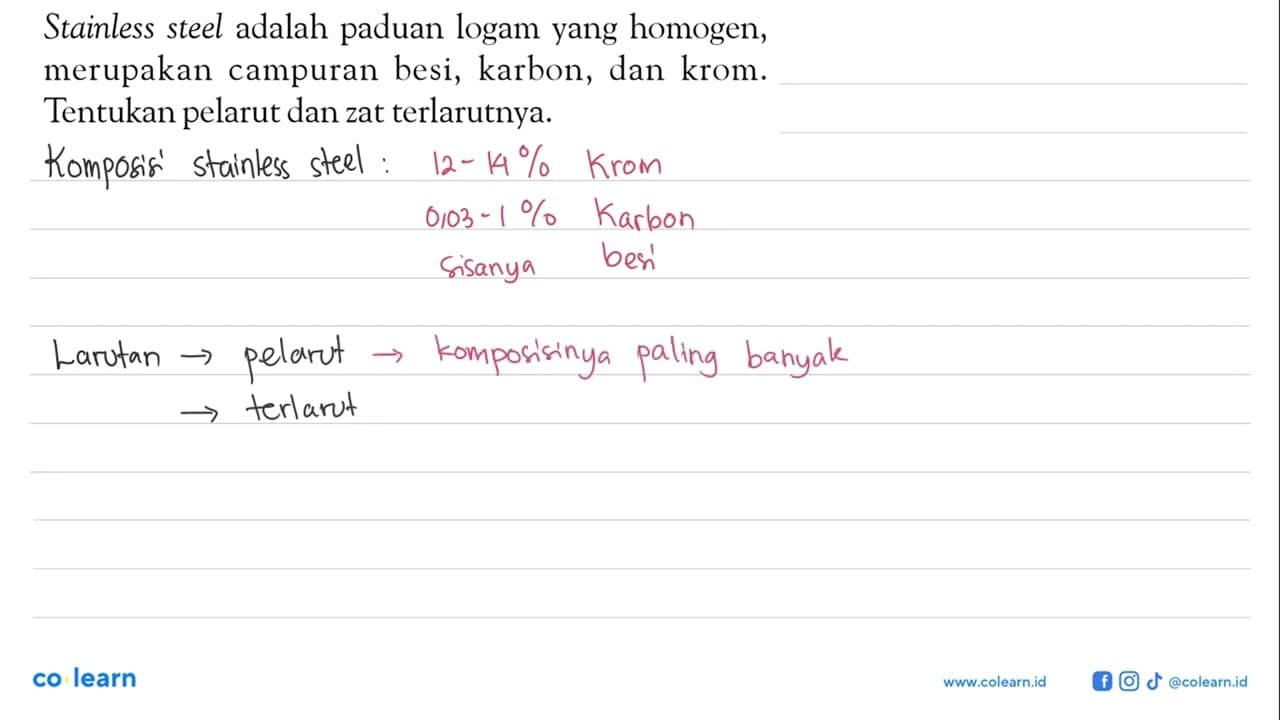 Stainless steel adalah paduan logam yang homogen,
merupakan campuran besi, karbon, dan krom.
Tentukan pelarut dan zat terlarutnya.
Komposisi stainless steel : 12 - 14 % Krom
0,03 - 1 % Karbon
sisanya besi
Larutan → pelarut → komposisinya paling banyak
→ terlarut
co learn
www.colearn.id @colearn.id